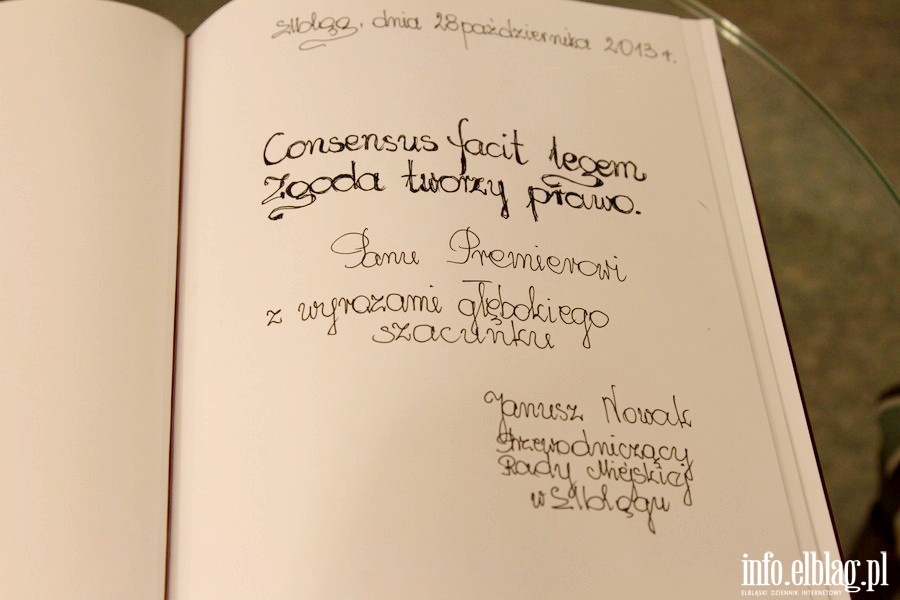 Elbląg, dnia 28 października 2013 r.
Consensus facit legem
Zgoda tworzy prawo.
Panu Premierowi
z wyrazami głębokiego
szacunku
Janusz Nowak
Przewodniczący
Rady Miejskiej
w Elblągu
info.elblag.pl
ELBLĄSKI DZIENNIK INTERNETOWY